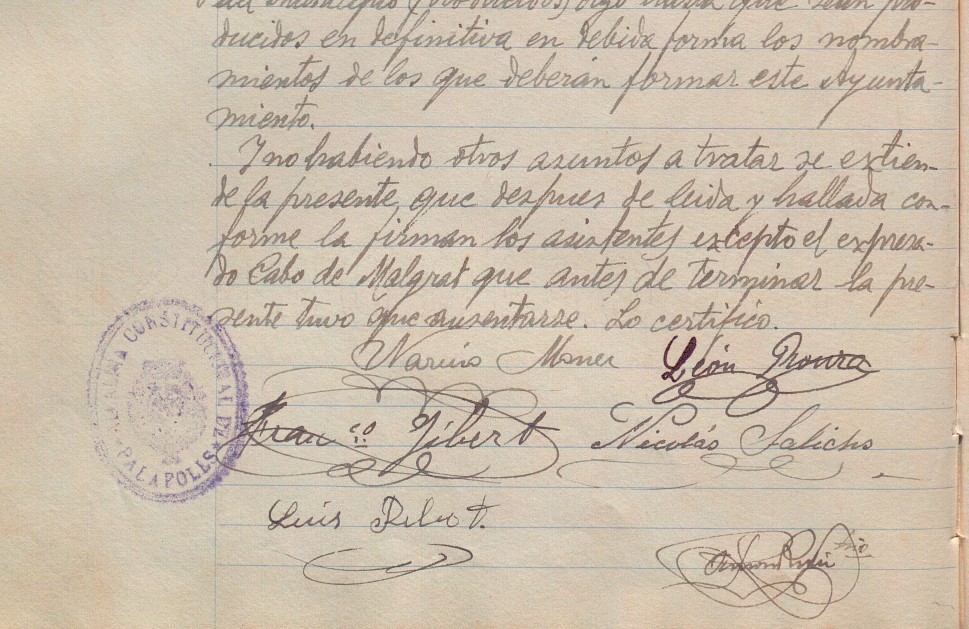 que sean pro-
ducidos en definitiva en debida forma los nombra-
mientos de los que deberán formar este Ayunta-
miento.
Y no habiendo otros asuntos a tratar se extien-
de la presente, que despues de leida y hallada con-
forme la firman los asistentes excepto el expresa-
do Cabo de Malgrat que antes de terminar la pre-
sente tuvo que ausentarse. Lo certifico.
Narciso
León Moura
Fran.co Gibert
Nicolás
Luis Ribot.
ALCALDIA CONSTITUCIONAL DE PALAFOLLS